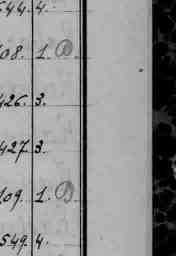 544. 4.
08. 1. D
426. 3.
427 3.
109. 1. D
549. 4.